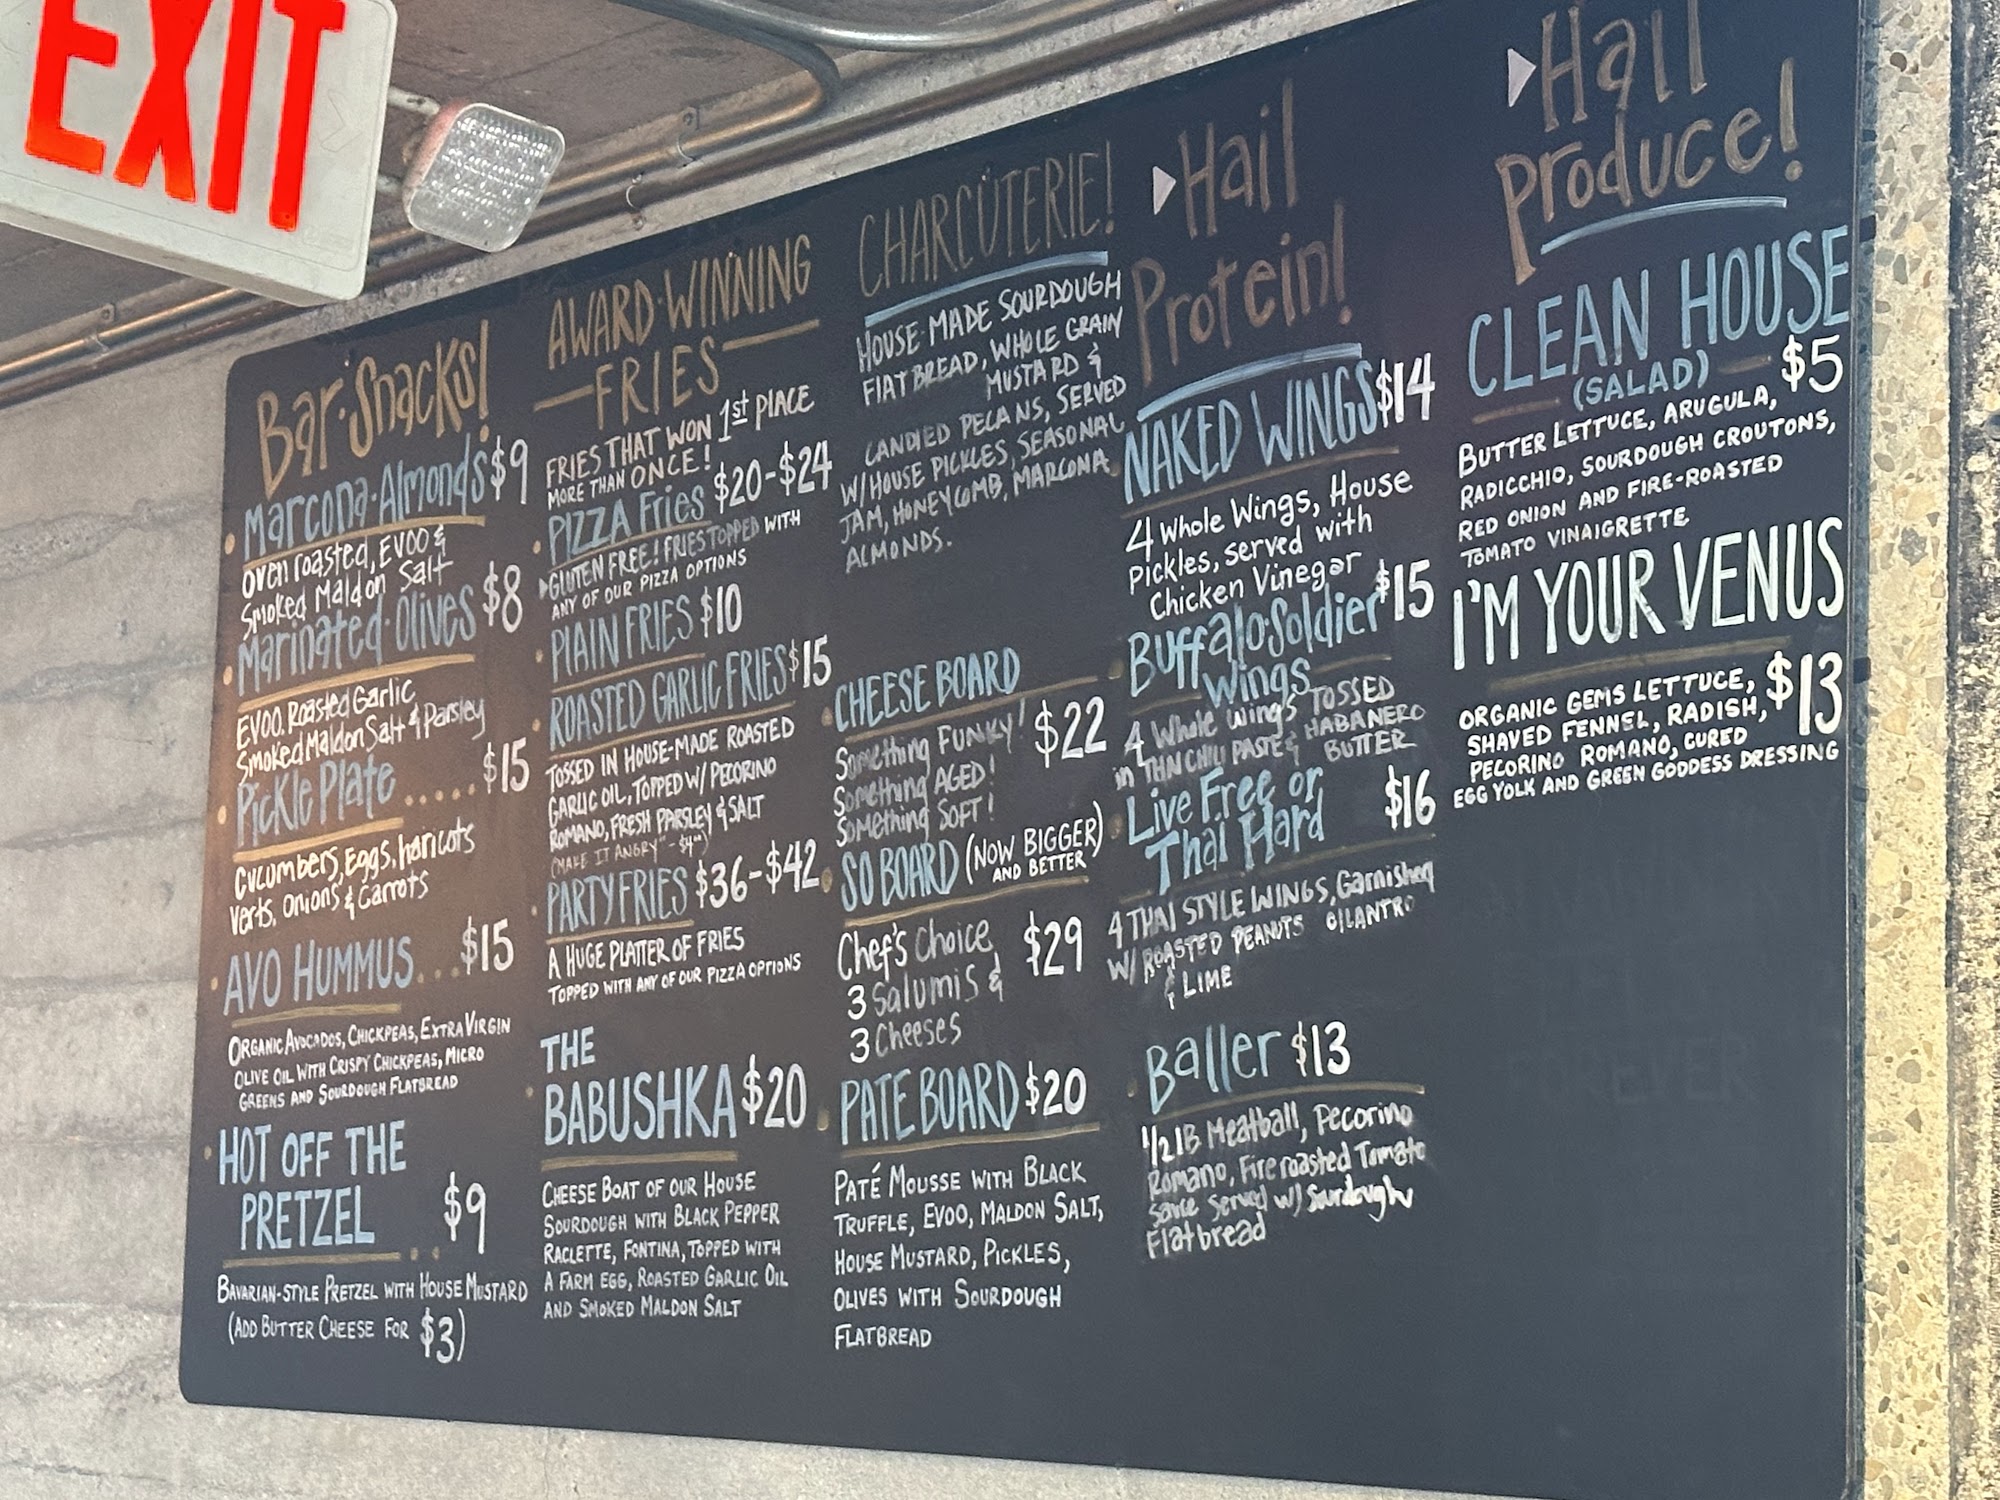 EXIT
Bar·Snacks!
Marcona·Almonds $9
Oven roasted, EVOO &
Smoked Maldon Salt
Marinated·Olives $8
EVOO, Roasted Garlic
Smoked Maldon Salt & Parsley
Pickle Plate ...... $15
Cucumbers, Eggs, haricots
Verts, Onions & Carrots
AVO HUMMUS... $15
ORGANIC AVOCADOS, CHICKPEAS, EXTRA VIRGIN
OLIVE OIL WITH CRISPY CHICKPEAS, MICRO
GREENS AND SOURDOUGH FLATBREAD
HOT OFF THE
PRETZEL .. $9
BAVARIAN-STYLE PRETZEL WITH HOUSE MUSTARD
(ADD BUTTER CHEESE FOR $3)
AWARD·WINNING
FRIES
FRIES THAT WON 1st PLACE
MORE THAN ONCE!
PIZZA Fries $20-$24
GLUTEN FREE! FRIES TOPPED WITH
ANY OF OUR PIZZA OPTIONS
PLAIN FRIES $10
ROASTED GARLIC FRIES $15
TOSSED IN HOUSE-MADE ROASTED
GARLIC OIL, TOPPED W/ PECORINO
ROMANO, FRESH PARSLEY & SALT
(MAKE IT ANGRY"-$4")
PARTY FRIES $36-$42
A HUGE PLATTER OF FRIES
TOPPED WITH ANY OF OUR PIZZA OPTIONS
THE
BABUSHKA $20
CHEESE BOAT OF OUR HOUSE
SOURDOUGH WITH BLACK PEPPER
RACLETTE, FONTINA, TOPPED WITH
A FARM EGG, ROASTED GARLIC OIL
AND SMOKED MALDON SALT
CHARCÜTERIE!
HOUSE-MADE SOURDOUGH
FLATBREAD, WHOLE GRAIN
MUSTARD &
CANDIED PECANS, SERVED
W/ HOUSE PICKLES, SEASONAL
JAM, HONEYCOMB, MARCONA
ALMONDS.
CHEESE BOARD
Something FUNKY! $22
Something AGED!
Something SOFT!
SO BOARD (NOW BIGGER)
AND BETTER
Chef's Choice $29
3 Salumis &
3 Cheeses
PATE BOARD $20
PATÉ MOUSSE WITH BLACK
TRUFFLE, EVOO, MALDON SALT,
HOUSE MUSTARD, PICKLES,
OLIVES WITH SOURDOUGH
FLATBREAD
Hail
Protein!
NAKED WINGS $14
4 Whole Wings, House
Pickles, served with
Chicken Vinegar
Buffalo·Soldier $15
Wings
4 Whole wings TOSSED
in THAI CHILI PASTE & HABANERO
BUTTER
Live Free or
Thai Hard $16
4 THAI STYLE WINGS, Garnished
W/ ROASTED PEANUTS CILANTRO
& LIME
Baller $13
1/2 lB Meatball, Pecorino
Romano, Fire roasted Tomato
Sauce Served w/ Sourdough
Flatbread
Hail
Produce!
CLEAN HOUSE
(SALAD) $5
BUTTER LETTUCE, ARUGULA,
RADICCHIO, SOURDOUGH CROUTONS,
RED ONION AND FIRE-ROASTED
TOMATO VINAIGRETTE
I'M YOUR VENUS
ORGANIC GEMS LETTUCE, $13
SHAVED FENNEL, RADISH,
PECORINO ROMANO, CURED
EGG YOLK AND GREEN GODDESS DRESSING